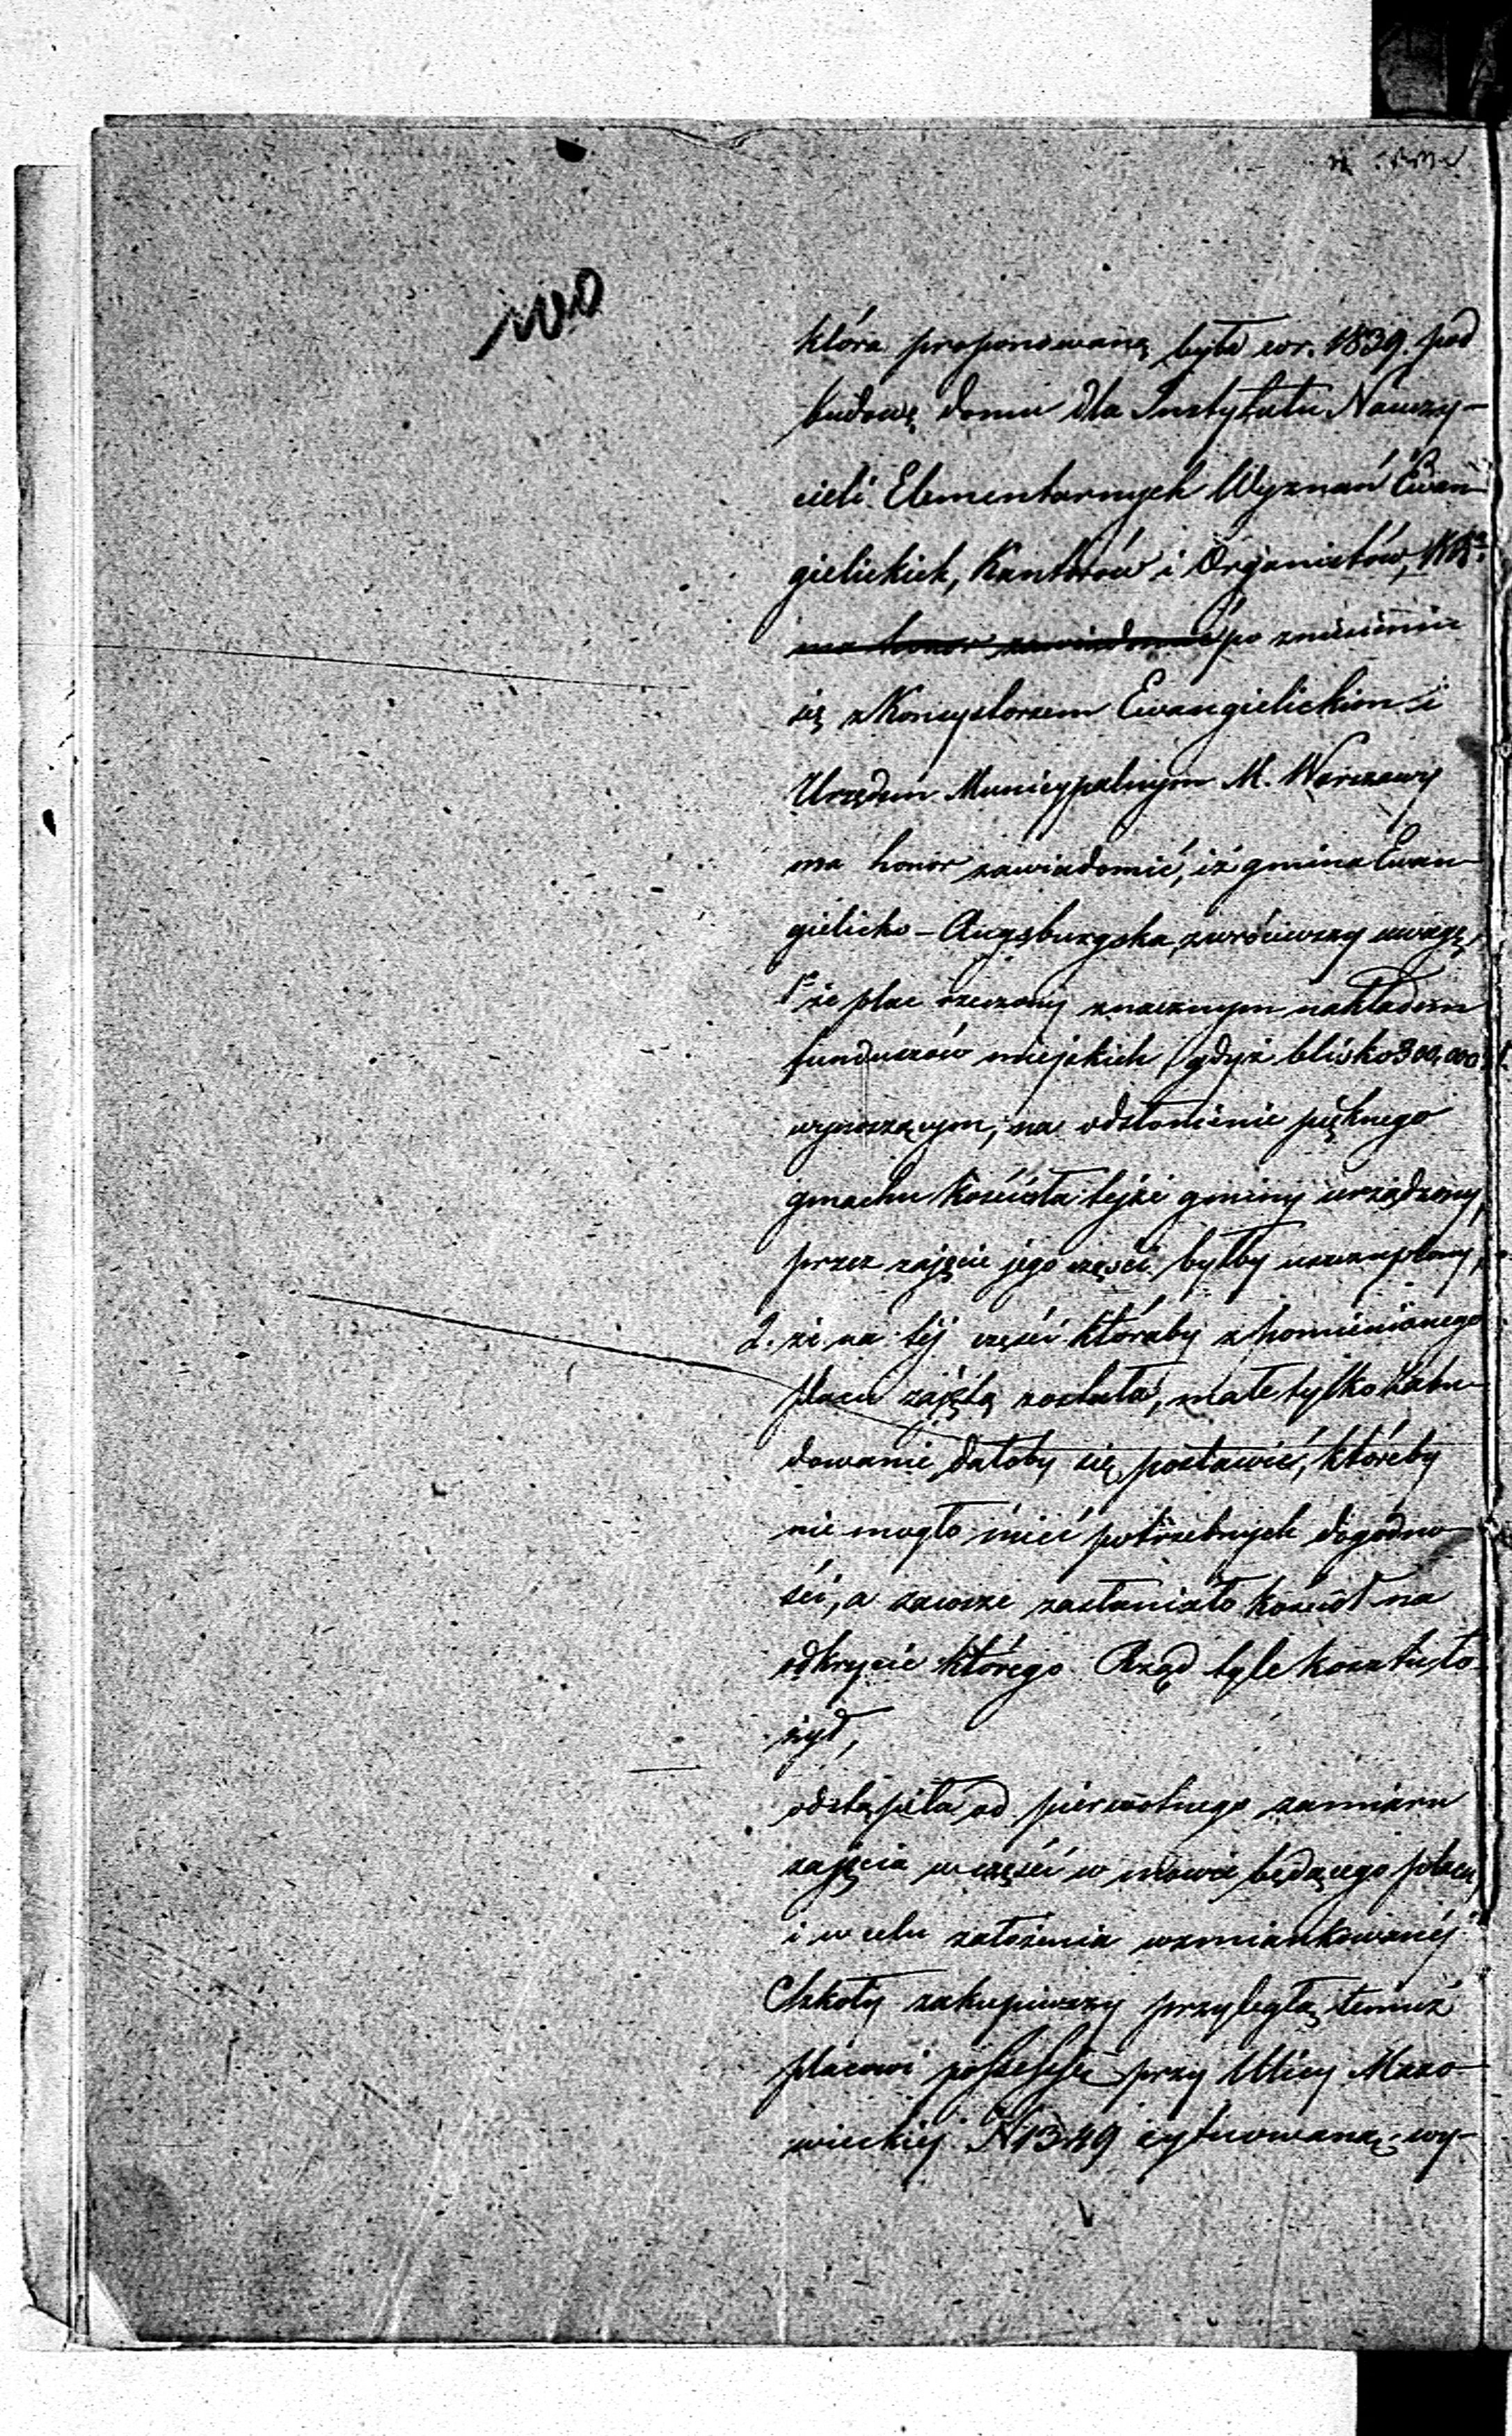 która proponowaną była w r. 1839. pod
budowę domu dla Instytutu Nauczy-
cieli Elementarnych Wyznań Ewan-
gielickich, Kantorów i Organistów,
ma honor zawiadomić po zniesieniu
się z Konsystorzem Ewangielickim i
Urzędem Municypalnym M. Warszawy
ma honor zawiadomić, iż gmina Ewan-
gielicko-Augsburgska, zwróciwszy uwagę,
1° że plac rzeczony znacznym nakładem
funduszów miejskich (gdyż blisko 300,000
wynoszącym, na odsłonienie pięknego
gmachu Kościoła tejże gminy urządzony,
przez zajęcie jego części byłby uszczuplony,
2. że na tej części któraby z pomienionego
placu zajętą została, małe tylko zabu-
dowanie dałoby się postawić, któreby
nie mogło mieć potrzebnych dogodno-
ści, a zawsze zasłaniało kościół na
odkrycie którego Rząd tyle kosztu ło-
żył,
odstąpiła od pierwotnego zamiaru
zajęcia w części w mowie będącego placu,
i w celu założenia wzmiankowanéj
Szkoły zakupiwszy przyległą temuż
placowi possessję przy Ulicy Mazo-
wieckiej N 1349 sytuowaną, wy-